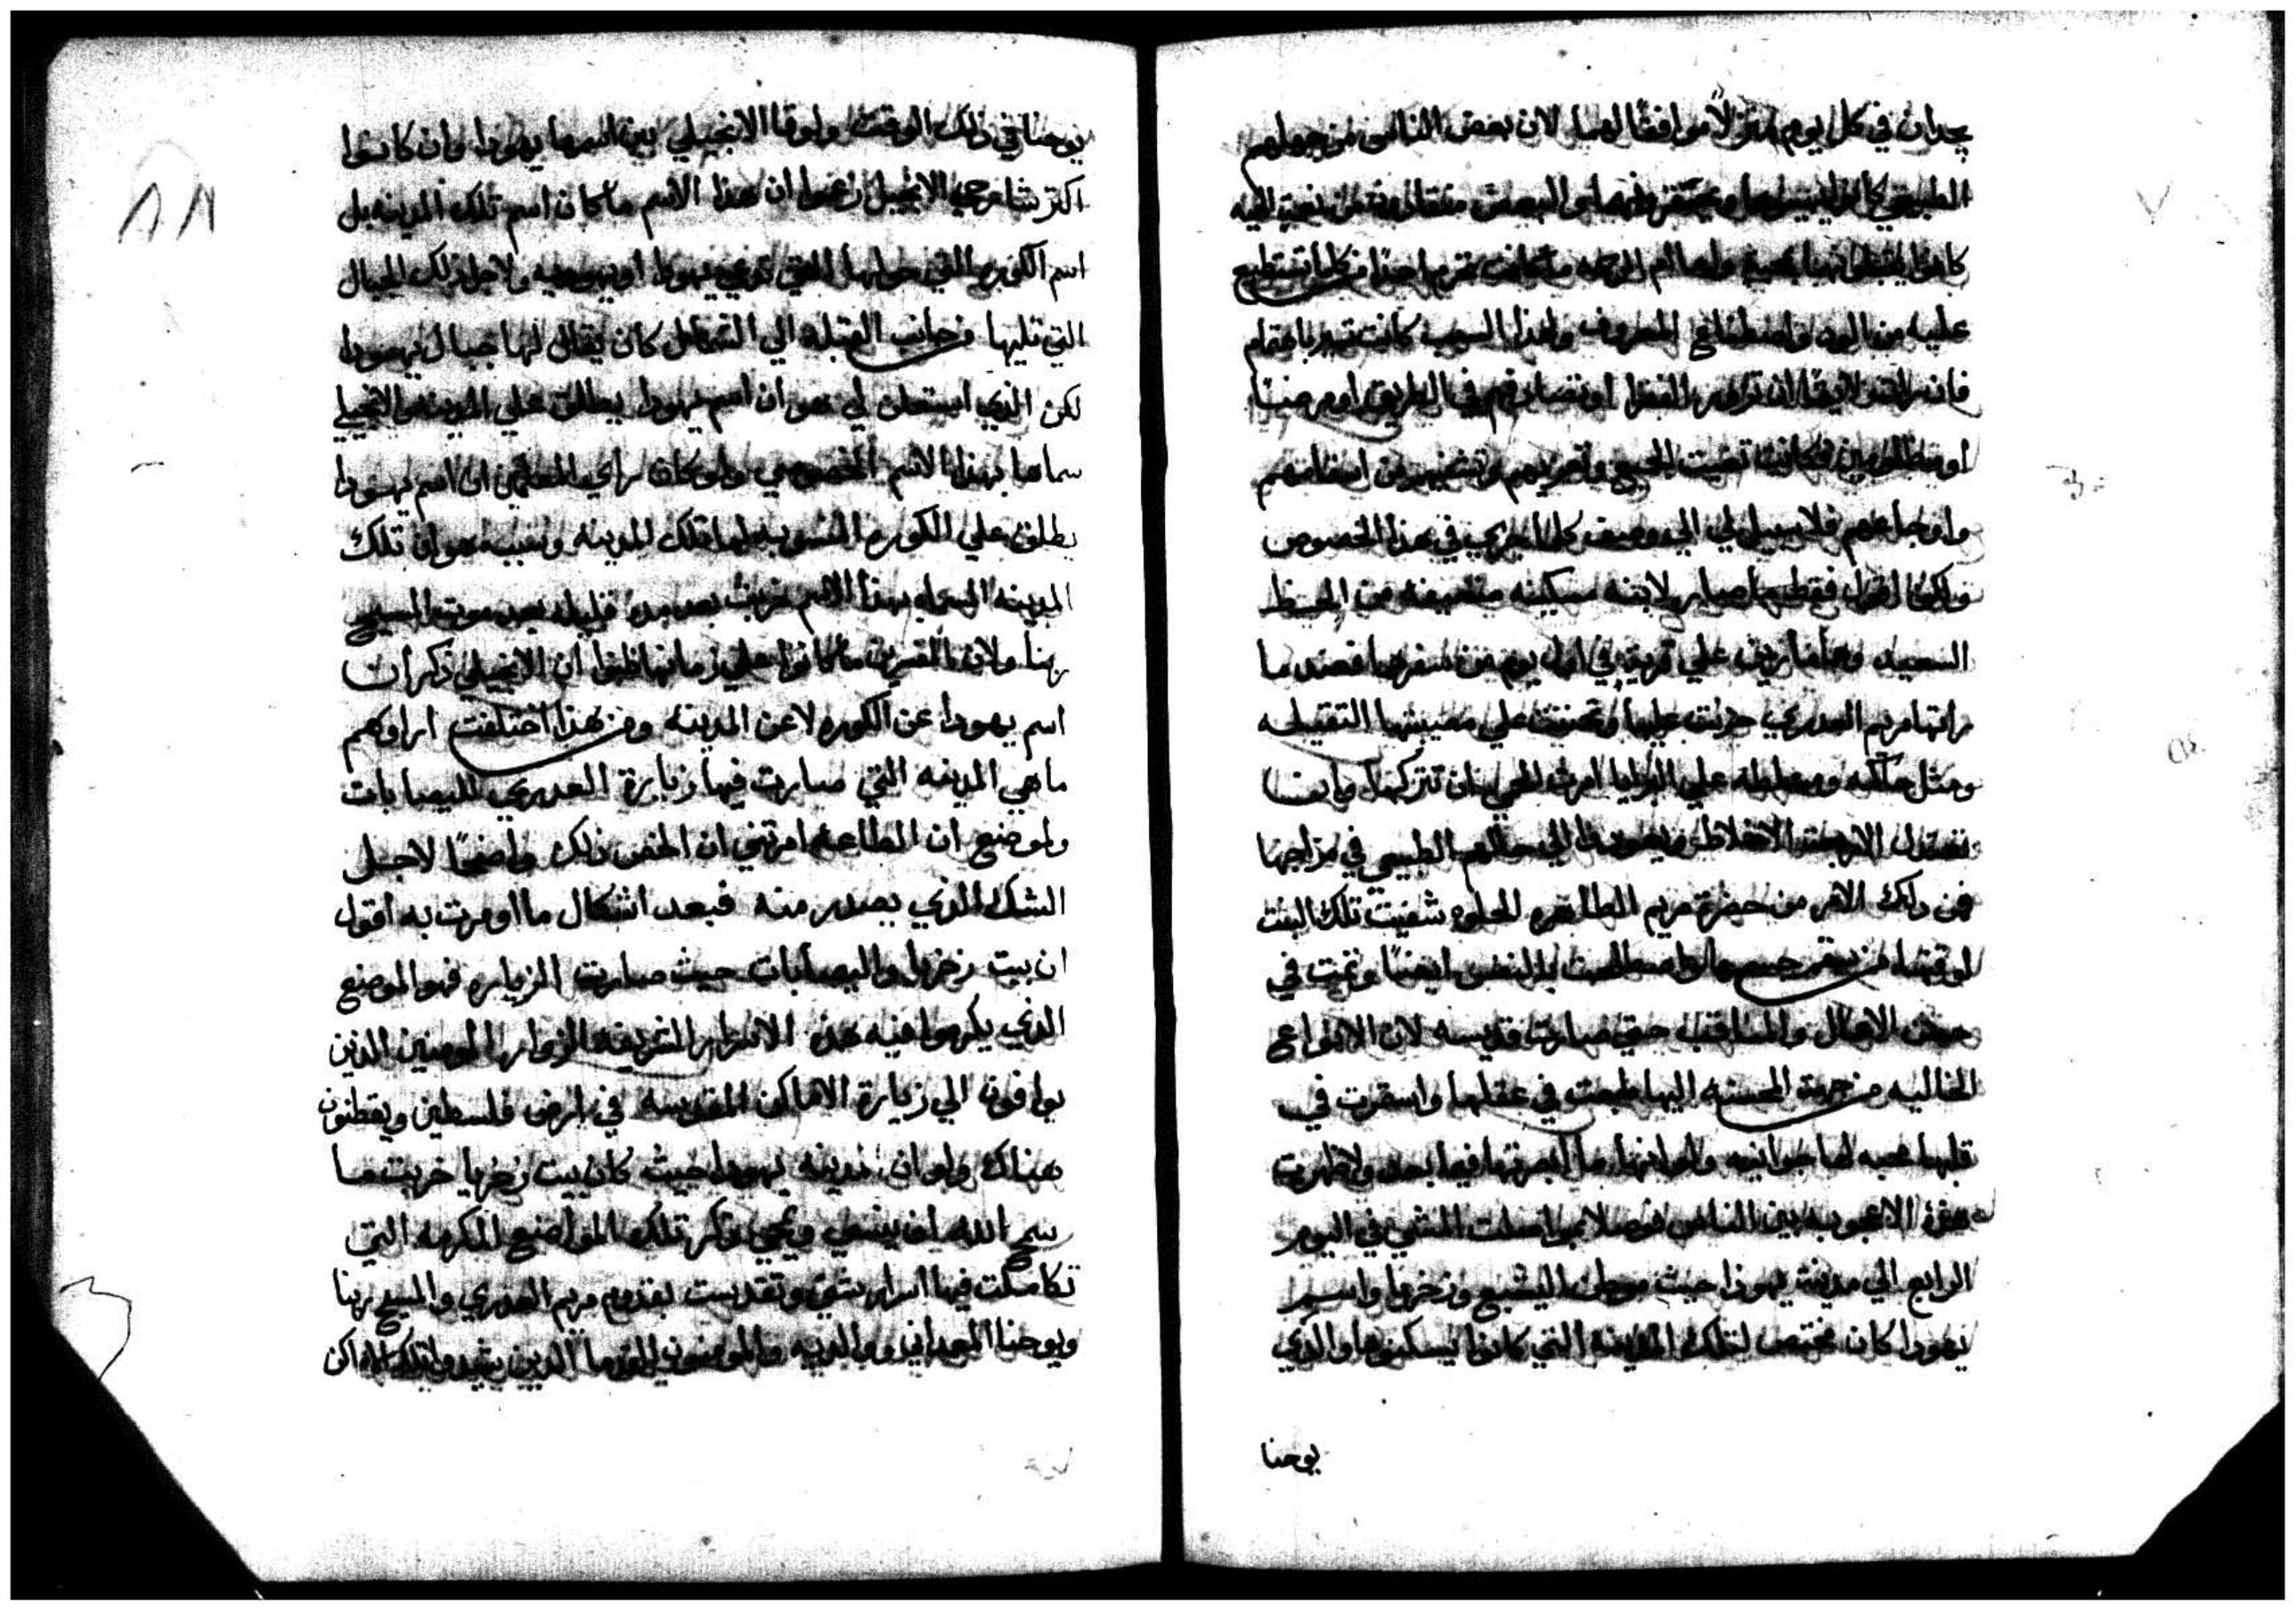 يجدان في كل يوم منزلاً موافقًا لهما لان بعض الناس من جهلهم
الطبيعي كانوا
كانوا يقبلونهما بمحبة وام الرحمه ما كانت تحرم احدًا مما تستطيع
عليه من العون واصطناع المعروف ولهذا السبب كانت تسير باهتمام
فان لايقًا ان تزور الفقرا او تصادفهم في الطريق او مرضيًا
او مظلومين فكانت تغيث الجميع وتعزيهم وتشفيهم من اسقامهم
واوجاعهم فلا سبيل لي الي وصف كلما يجري في هذا الخصوص
ولكن اقول فقط ما صار لابنه مسكينه ضعيفه من الحظ
السعيد وهما مارين علي قرية في اول يوم من سفرهما فعندما
راتها مريم العدري حزنت عليها وتحننت علي مصيبتها الثقيله
ومثل ملكه ومسلطه علي البرايا امرت الحمي ان تتركها وايضا
تعتدل الاربعة الاخلاط ويعودوا الي حالهم الطبيعي في مزاجها
فمن ذلك الامر من حضرة مريم الطاهره الحلوه شفيت تلك البنت
لوقتها من سقم جسمها وانصلحت بالنفس ايضًا ونمت في
حسن الاعمال والمناقب حتي صارت قديسه لان الانواع
الخاليه من جهة المحسنه اليها طبعت في عقلها واستقرت في
قلبها محبه لها جوانيه ولو انها ما ابصرتها فيما بعد ولا ظهرت
هذه الاعجوبه بين الناس فوصلا بمواصلت المشي في اليوم
الرابع الي مدينة يهوذا حيث موطن اليشبع وزخريا واسم
يهودا كان مختص لتلك المدينة التي كانوا يسكنوها والذي
يوحنا
يوحنا في ذلك الوقت ولوقا الانجيلي بين اسمها يهودا وان كانوا
اكتر شارحي الانجيل زعموا ان هذا الاسم ما كان اسم تلك المدينه بل
اسم الكوره التي حولها التي تدعي يهودا او يهوديه ولاجل ذلك الجبال
التي تليها من جانب القبله الي الشمال كان يقال لها جبال يهودا
لكن الذي استعلن لي هو ان اسم يهودا يطلق علي المدينه والانجيلي
سماها بهذا الاسم الخصوصي ولو كان راي المعلمين ان اسم يهودا
يطلق علي الكوره المنسوبه لها تلك المدينه وسببه هو ان تلك
المدينه المسماه بهذا الاسم خربت بعد مده قليله بعد موت المسيح
ربنا ولان المفسرين ما كانوا علي زمانها ظنوا ان الانجيلي ذكر ان
اسم يهودا عن الكوره لا عن المدينه ومن هذا اختلفت اراوهم
ما هي المدينه التي صارت فيها زيارة العدري لاليصابات
ولموضع ان الطاعه امرتني ان افحص ذلك واضحًا لاجل
الشك الذي يصدر منه فبعد اشكال ما اومرت به اقول
ان بيت زخريا واليصابات حيث صارت الزياره فهو الموضع
الذي يكرموا فيه هذه الاسرار الشريفه الزوار المومنين الذين
يوافون الي زيارة الاماكن المقدسه في ارض فلسطين ويقطنون
هناك ولو ان مدينه يهودا حيث كان بيت زخريا خربت ما
سمح الله ان ينسي ويمحي ذكر تلك المواضع المكرمه التي
تكاملت فيها اسرار شتي وتقدست بقدوم مريم العدري والمسيح ربنا
ويوحنا المعمدان ووالديه والمومنون القدما الذين شيدوا تلك الاماكن